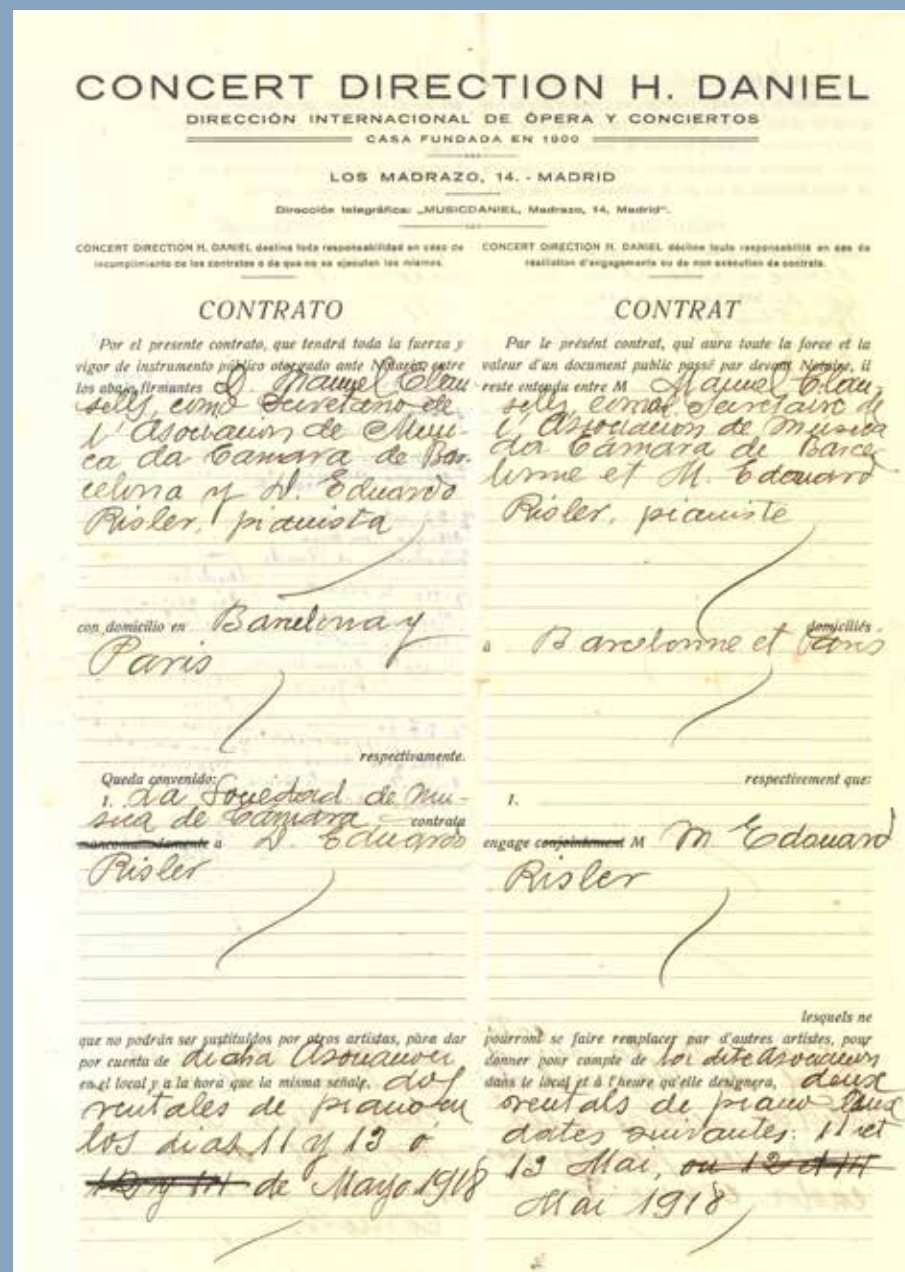 CONCERT DIRECTION H. DANIEL
DIRECCIÓN INTERNACIONAL DE ÓPERA Y CONCIERTOS
CASA FUNDADA EN 1900
LOS MADRAZO, 14. - MADRID
Dirección telegráfica: „MUSICDANIEL, Madrazo, 14, Madrid".
CONCERT DIRECTION H. DANIEL declina toda responsabilidad en caso de
incumplimiento de los contratos o de que no se ejecuten los mismos.
CONTRATO
Por el presente contrato, que tendrá toda la fuerza y
vigor de instrumento público otorgado ante Notario, entre
los abajo firmantes D. Manuel Clau-
sells, como Secretario de
l' Asociacion de Musi-
ca da Cámara de Bar-
celona y D. Eduardo
Risler, pianista
con domicilio en Barcelona y
Paris
respectivamente.
Queda convenido:
1. La Sociedad de Mu-
sica de Cámara contrata
mancomunadamente a D. Eduardo
Risler
que no podrán ser sustituídos por otros artistas, para dar
por cuenta de dicha Asociacion
en el local y a la hora que la misma señale, dos
recitales de piano en
los dias 11 y 13 ó
12 y 14 de Mayo 1918
CONCERT DIRECTION H. DANIEL décline toute responsabilité en cas de
résiliation d'engagements ou de non exécution de contrats.
CONTRAT
Par le présent contrat, qui aura toute la force et la
valeur d'un document public passé par devant Notaire, il
reste entendu entre M Manuel Clau-
sells, comme Secretaire de
l' Asociacion de Musica
da Cámara de Barce
lonne et M. Edouard
Risler, pianiste
domiciliés
à Barcelonne et Paris
respectivement que:
1.
engage conjointement M M Edouard
Risler
lesquels ne
pourront se faire remplacer par d'autres artistes, pour
donner pour compte de
dans le local et à l'heure qu'elle designera, deux
recitals de piano aux
dates suivantes: 11 et
13 Mai, ou 12 et 14
Mai 1918